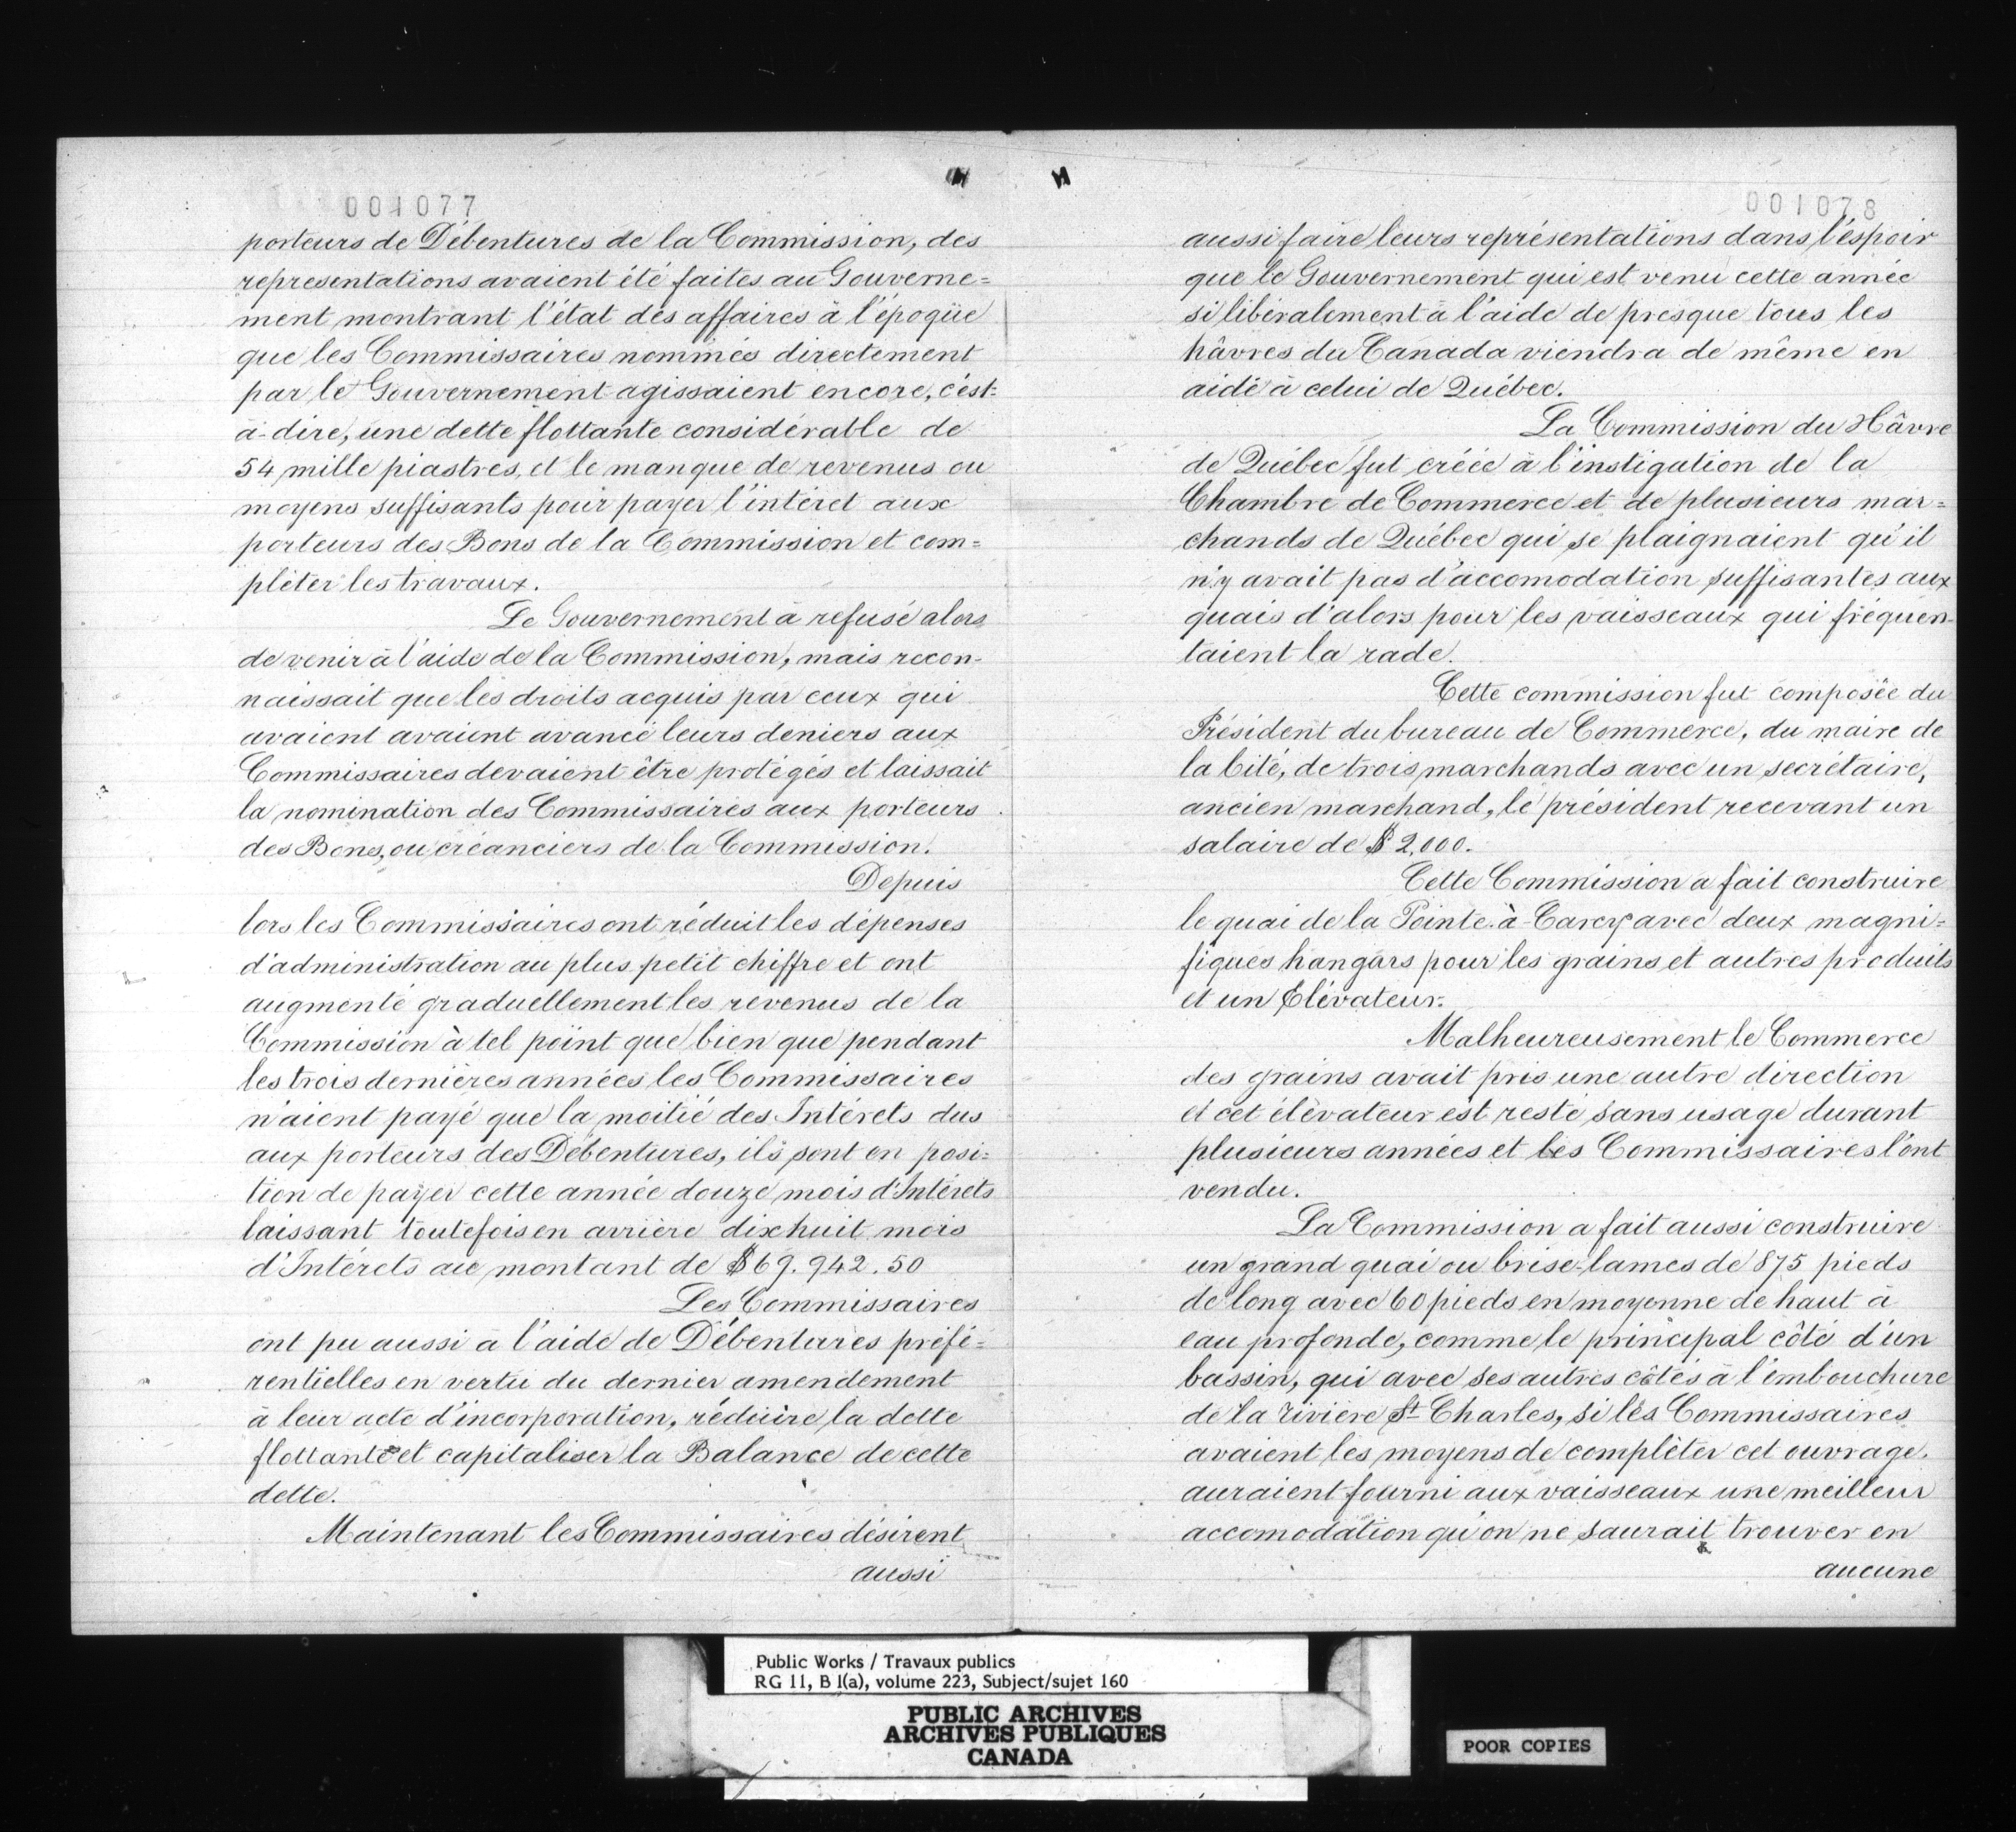 001077
porteurs de Débentures de la Commission, des
représentations avaient été faites au Gouverne=
ment montrant l'état des affaires à l'époque
que les Commissaires nommés directement
par le Gouvernement agissaient encore, c'est-
à-dire, une dette flottante considérable de
54 mille piastres, et le manque de revenus ou
moyens suffisants pour payer l'intéret aux
porteurs des Bons de la Commission et com=
pléter les travaux.
Le Gouvernement à refusé alors
de venir à l'aide de la Commission, mais recon-
naissait que les droits acquis par ceux qui
avaient avaient avancé leurs deniers aux
Commissaires devaient être protégés et laissait
la nomination des Commissaires aux porteurs
des Bons, ou créanciers de la Commission.
Depuis
lors les Commissaires ont réduit les dépenses
d'administration au plus petit chiffre et ont
augmenté graduellement les revenus de la
Commission à tel point que bien que pendant
les trois dernières années les Commissaires
n'aient payé que la moitié des Intérets dus
aux porteurs des Débentures, ils sont en posi=
tion de payer cette année douze mois d'Intérets
laissant toutefois en arrière dixhuit mois
d'Intérets au montant de $69.942.50
Les Commissaires
ont pu aussi à l'aide de Débentures préfé=
rentielles en vertu du dernier amendement
à leur acte d'incorporation, réduire la dette
flottante et capitaliser la Balance de cette
dette.
Maintenant les Commissaires désirent
aussi
001078
aussi faire leurs représentations dans l'éspoir
que le Gouvernement qui est venu cette année
si libéralement à l'aide de presque tous les
hâvres du Canada viendra de même en
aide à celui de Québec.
La Commission du Hâvre
de Québec fut créée à l'instigation de la
Chambre de Commerce et de plusieurs mar=
chands de Québec qui se plaignaient qu'il
n'y avait pas d'accomodation suffisantes aux
quais d'alors pour les vaisseaux qui fréquen-
taient la rade.
Cette commission fut composée du
Président du bureau de Commerce, du maire de
la Cité, de trois marchands avec un secrétaire,
ancien marchand, le président recevant un
salaire de $2,000.
Cette Commission a fait construire
le quai de la Pointe-à-Carcy avec deux magni=
fiques hangars pour les grains et autres produits
et un Elévateur.
Malheureusement le Commerce
des grains avait pris une autre direction
et cet élévateur est resté sans usage durant
plusieurs années et les Commissaires l'ont
vendu.
La Commission a fait aussi construire
un grand quai ou brise-lames de 875 pieds
de long avec 60 pieds en moyenne de haut à
eau profonde, comme le principal côté d'un
bassin, qui avec ses autres côtés à l'embouchure
de la rivière St Charles, si les Commissaires
avaient les moyens de compléter cet ouvrage.
auraient fourni aux vaisseaux une meilleur
accomodation qu'on ne saurait trouver en
aucune
Public Works / Travaux publics
RG 11, B 1(a), volume 223, Subject/sujet 160
PUBLIC ARCHIVES
ARCHIVES PUBLIQUES
CANADA
POOR COPIES